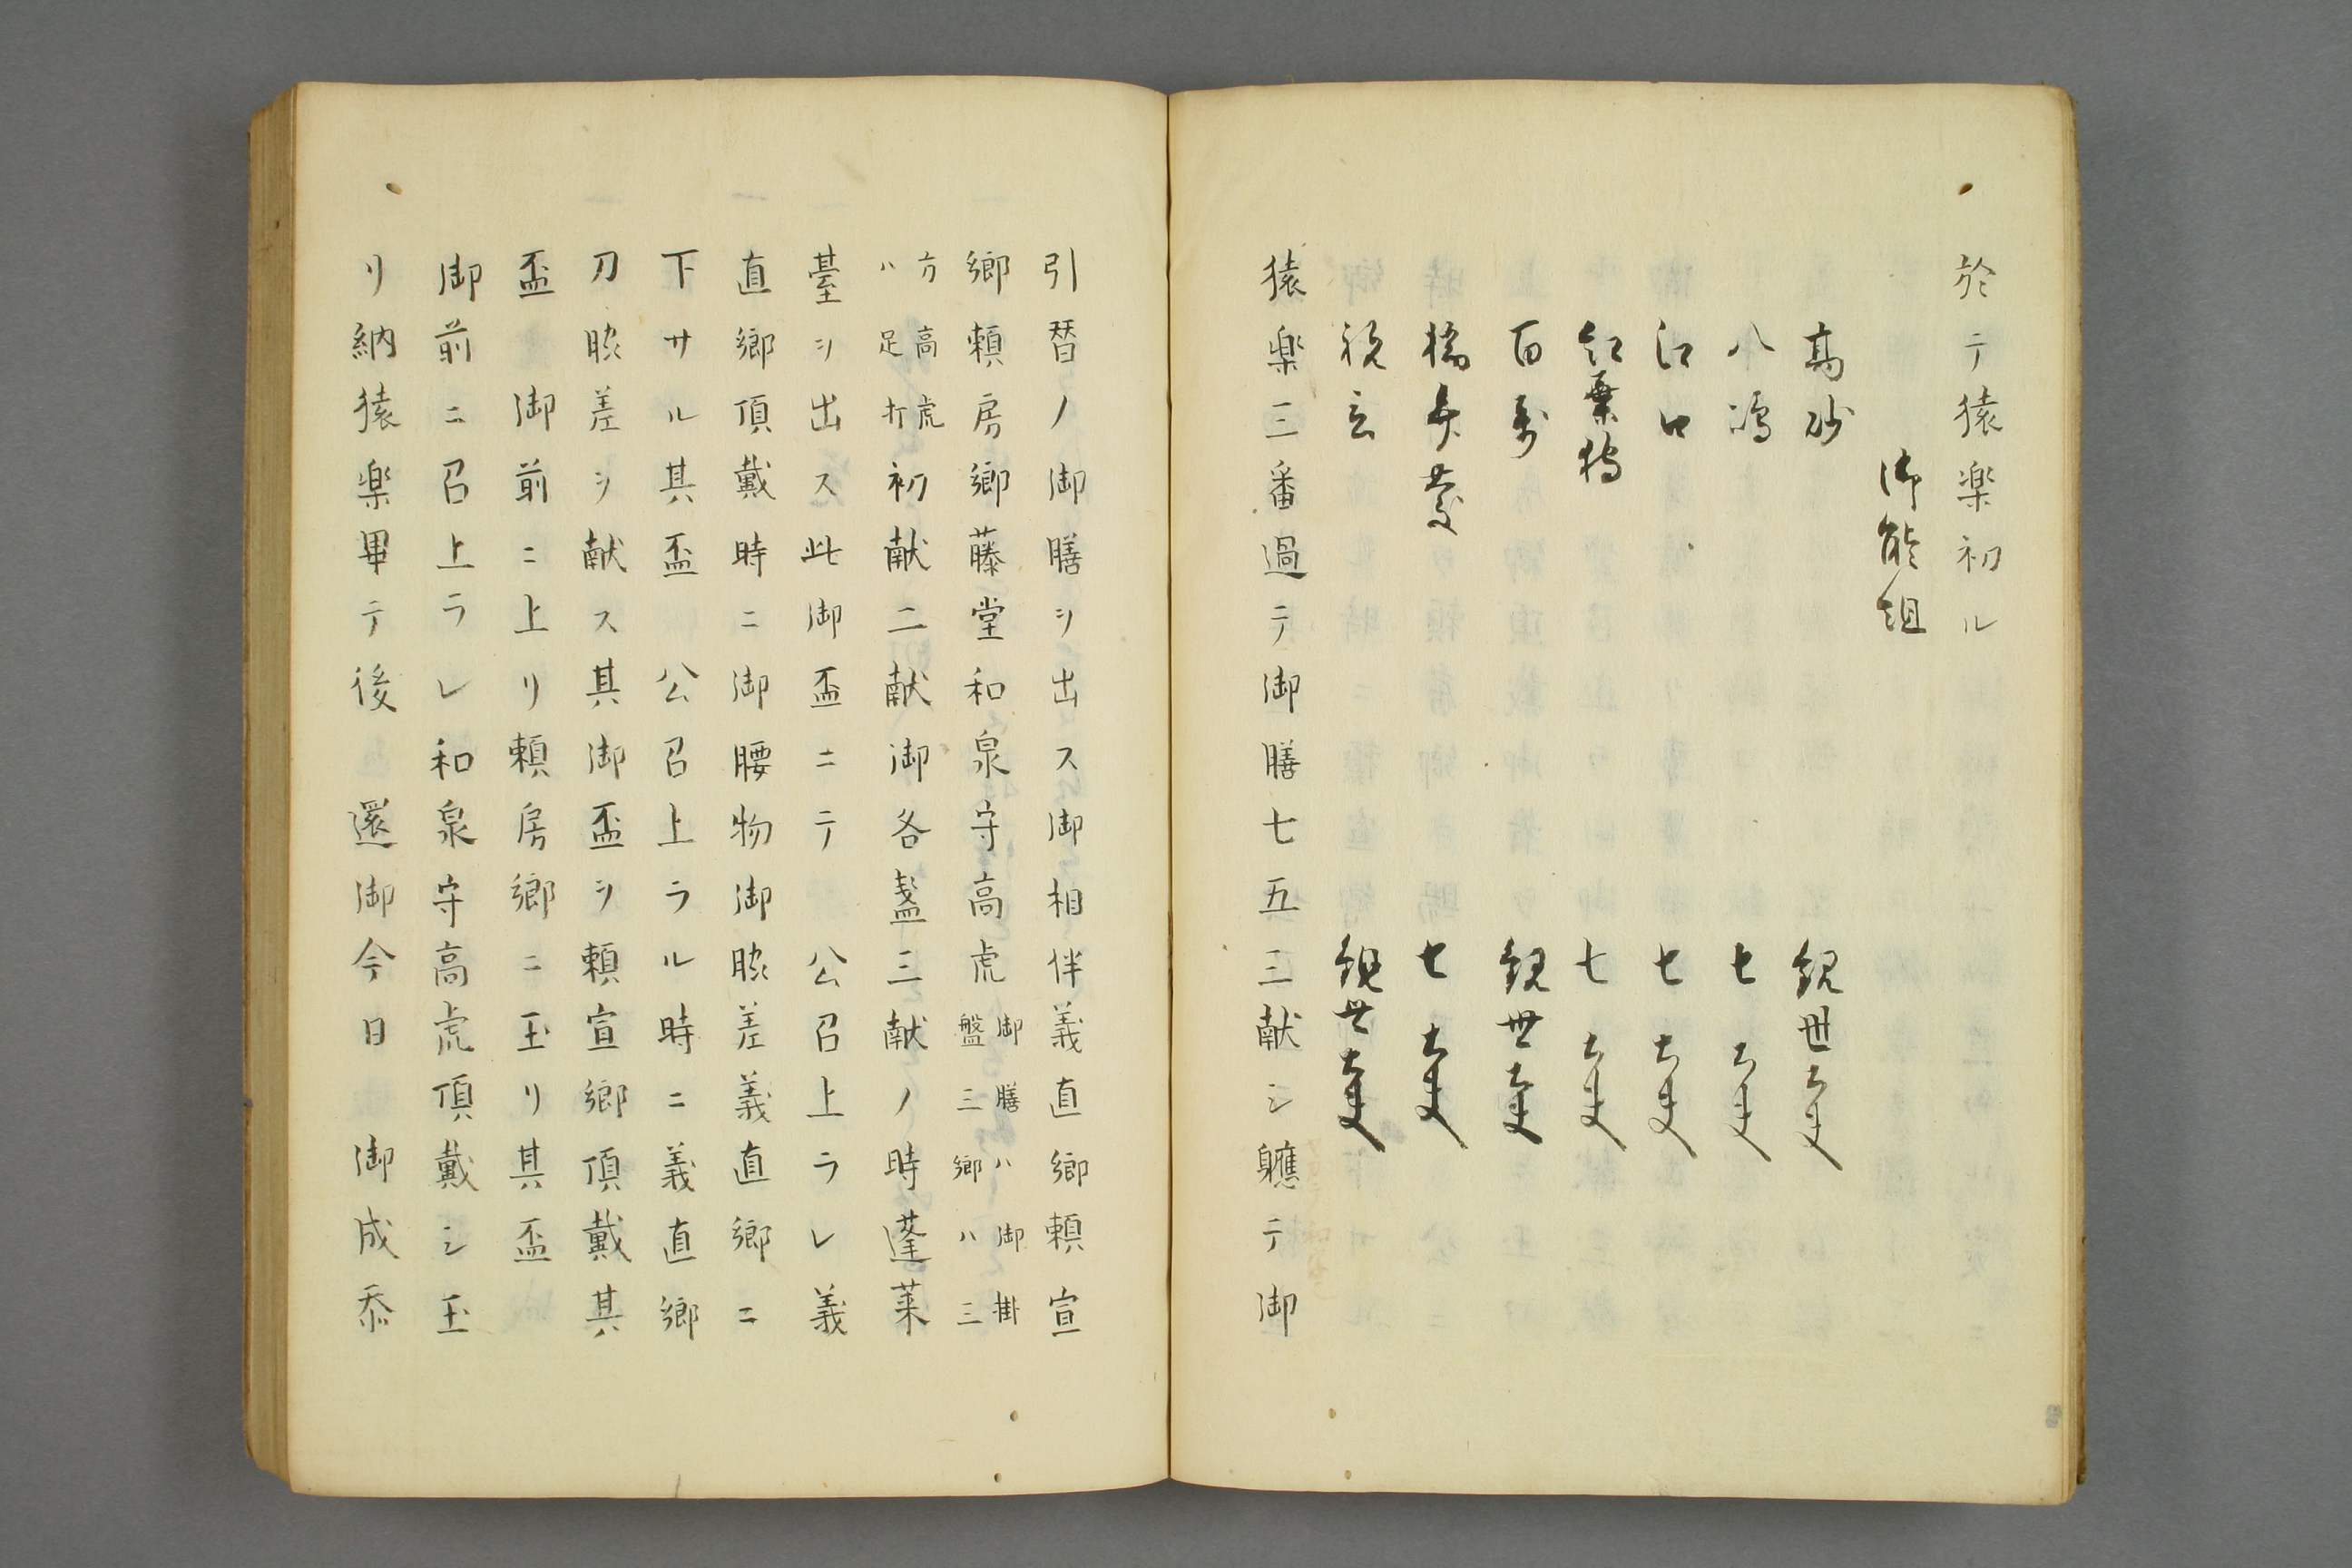 於テ猿楽初ル
御能組
高砂 観世大夫
八嶋 七大夫
江口 七大夫
紅葉狩 七大夫
百萬 観世大夫
橋弁慶 七大夫
祝言 観世大夫
猿楽三番過テ御膳七五三献シ軈テ御
引替ノ御膳ヲ出ス御相伴義直郷頼宣
郷頼房郷藤堂和泉守高虎御膳ハ御掛盤三郷ハ三
方高虎ハ足打初献二献御各盞三献ノ時蓬莱
臺ヲ出ス此御盃ニテ 公召上ラレ義
直郷頂戴時ニ御腰物御脇差義直郷ニ
下サル其盃 公召上ラル時ニ義直郷
刀脇差ヲ献ス其御盃ヲ頼宣郷頂戴其
盃 御前ニ上リ頼房郷ニ玉リ其盃
御前ニ召上ラレ和泉守高虎頂戴シ玉
リ納猿楽畢テ後 還御今日 御成忝